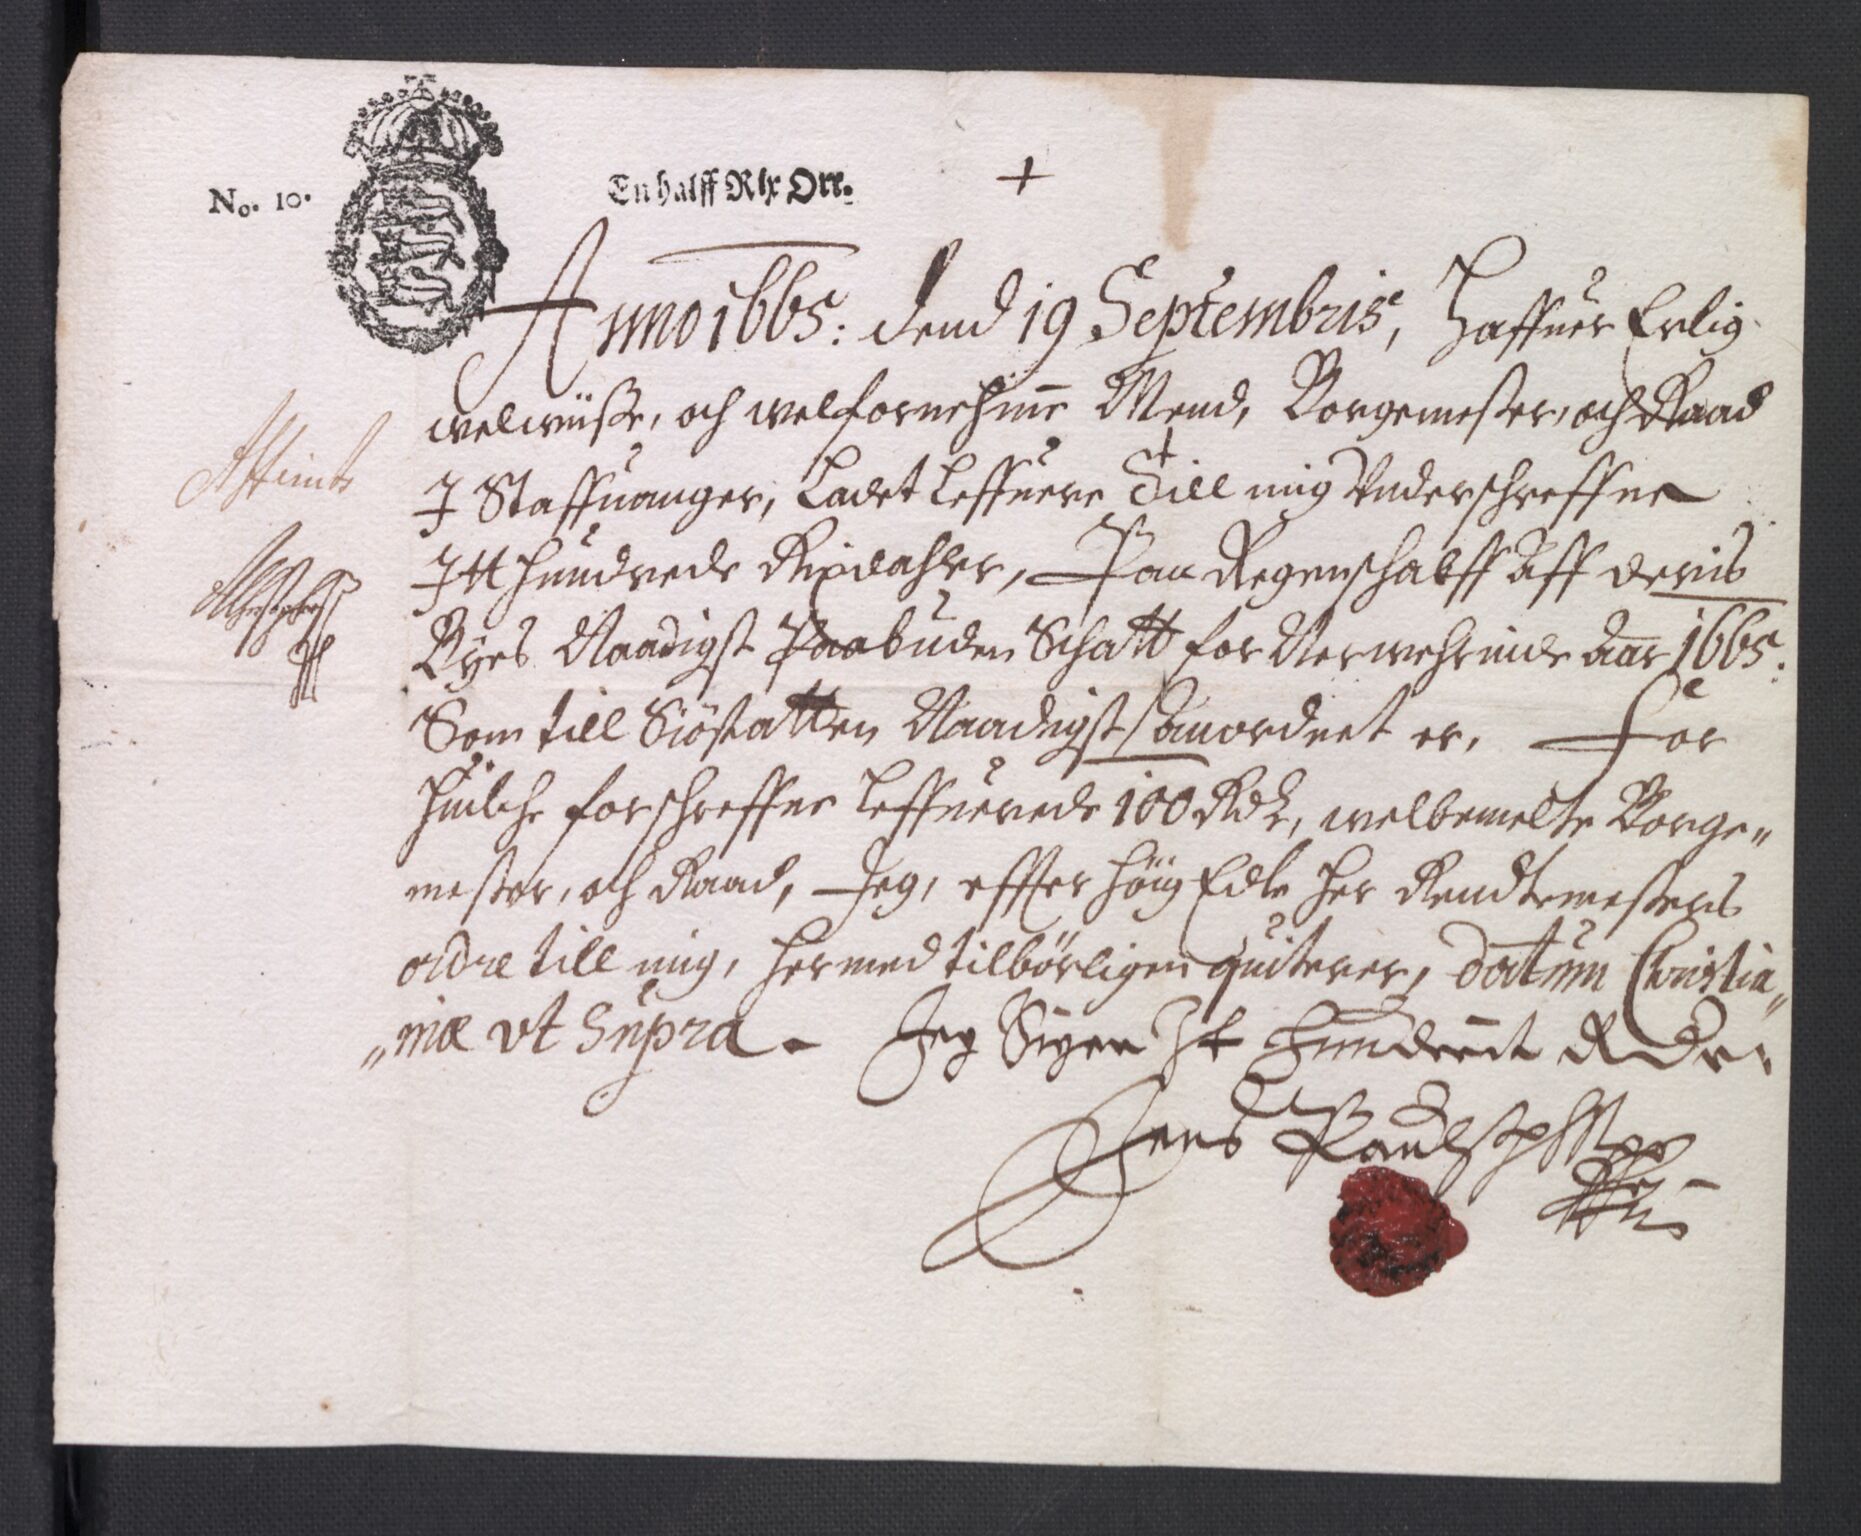 No. 10.
En halff Rix Ort.
Anno 1665. dend 19 Septembris, Haffuer Erlig
welwiisse, och welfornehme Mend, Borgemester, och Raad
I Staffuanger, Ladet Leffuere Till mig Underschreffne
Itt Hundrede Rixdahler, Paa Regenschabff Aff deris
Byes Naadigst Paabuden Schatt for Nerwehrinde Aar 1665.
Som till Siöstatten Naadigst anordnet er, For
huilche forschreffne Leffuerede 100 Rdr, welbemelte Borge-
mester, och Raad, Jeg, effter höig Edle her Rendtemesters
ordre till mig, hermed tilbörligen quiterer, Datum Christia-
niæ ut Supra. Jeg Siger It Hundredt RDr.
Jens